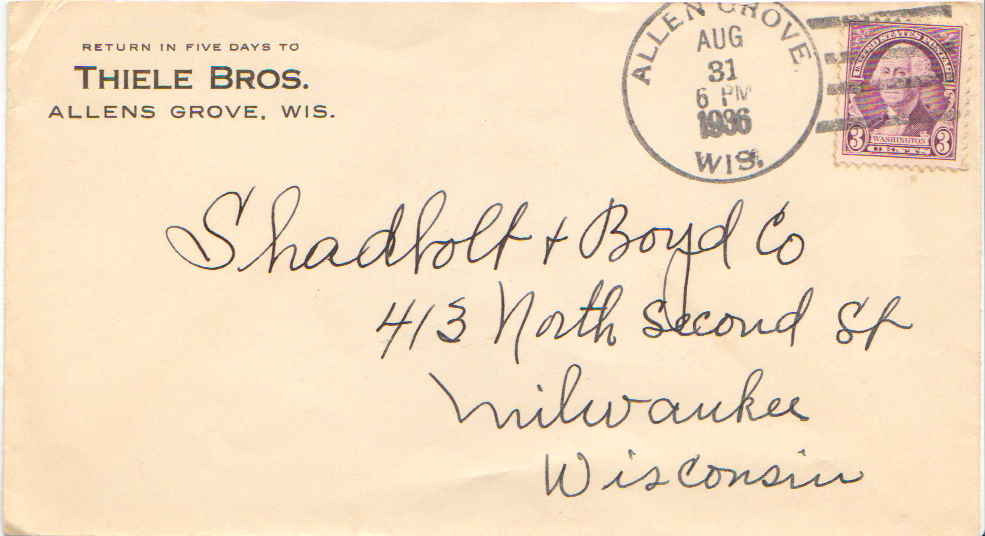 RETURN IN FIVE DAYS TO
THIELE BROS.
ALLENS GROVE, WIS.
ALLEN GROVE
AUG
31
6 PM
1936
WIS.
UNITED STATES POSTAGE
3 WASHINGTON 3
CENTS
Shadbolt + Boyd Co
413 North Second St
Milwaukee
Wisconsin